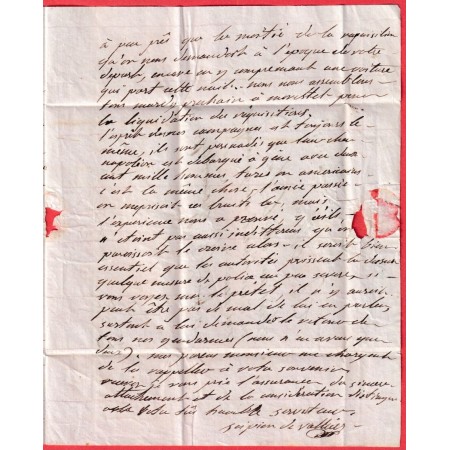 à peu près que la moitié de la requisition
qu'on nous demandoit à l'époque de votre
depart, encore en y comprenant une voiture
qui part cette nuit. nous nous assemblons
tous mardi prochain à morestel pour
la liquidation des requisitions,
l'esprit de nos campagnes est toujours le
même, ils ont persuadés que
napoleon est debarqué à gene avec deux
cent mille hommes turcs ou americains
c'est la même chose, l'année passée
on meprisoit ces bruits là, mais
l'experience nous a prouvé, qu'ils
n'etoint pas aussi indifferens qu'on
paroissoit le croire alors. il seroit bien
essentiel que les autorités prissent la dessus
quelque mesure de police un peu severe si
vous voyez mr le préfet, il n'y auroit
peut être pas de mal de lui en parler
surtout à lui demander le retour de
tous nos gendarmes (nous n'en avons que
deux), mes parens monsieur me chargent
de les rappeller à votre souvenir
je vous prie l'assurance du sincere
attachement et de la consideration distinguée
votre très humble serviteur
scipion de vallier